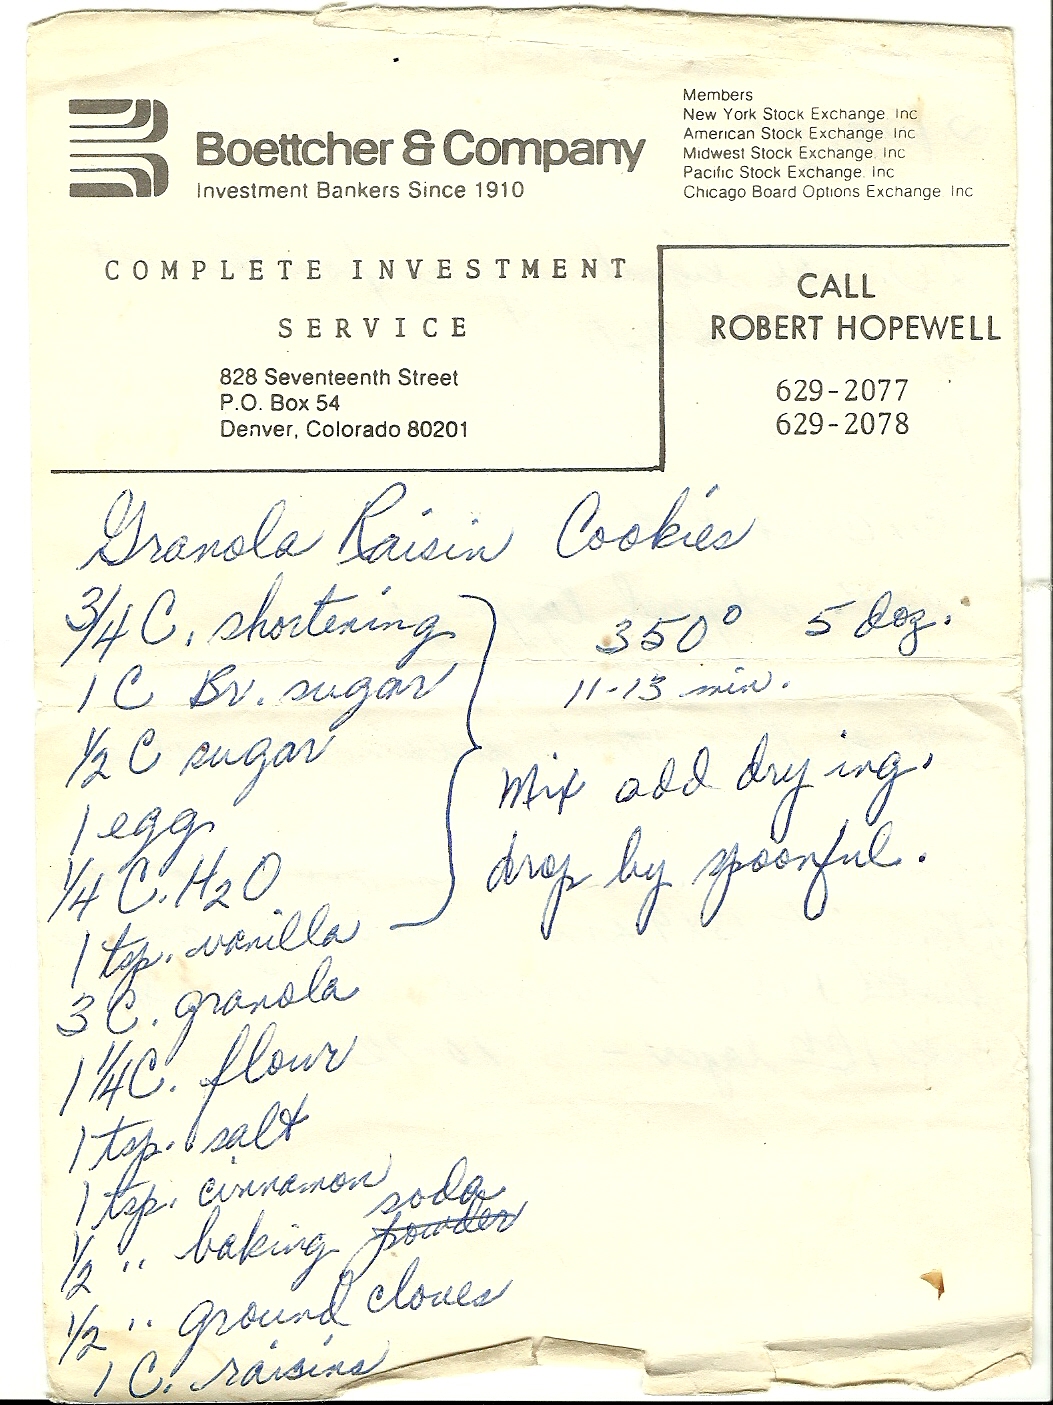 Boettcher & Company
Investment Bankers Since 1910
Members
New York Stock Exchange, Inc
American Stock Exchange, Inc
Midwest Stock Exchange, Inc
Pacific Stock Exchange, Inc
Chicago Board Options Exchange, Inc
COMPLETE INVESTMENT
SERVICE
828 Seventeenth Street
P.O. Box 54
Denver, Colorado 80201
CALL
ROBERT HOPEWELL
629-2077
629-2078
Granola Raisin Cookies
3/4 C. shortening
1 C Br. sugar
1/2 C sugar
1 egg
1/4 C. H2O
1 tsp. vanilla
350° 5 doz.
11-13 min.
Mix add dry ing.
drop by spoonful.
3 C. granola
1 1/4 C. flour
1 tsp. salt
1 tsp. cinnamon
1/2 " baking powder soda
1/2 " ground cloves
1 C. raisins